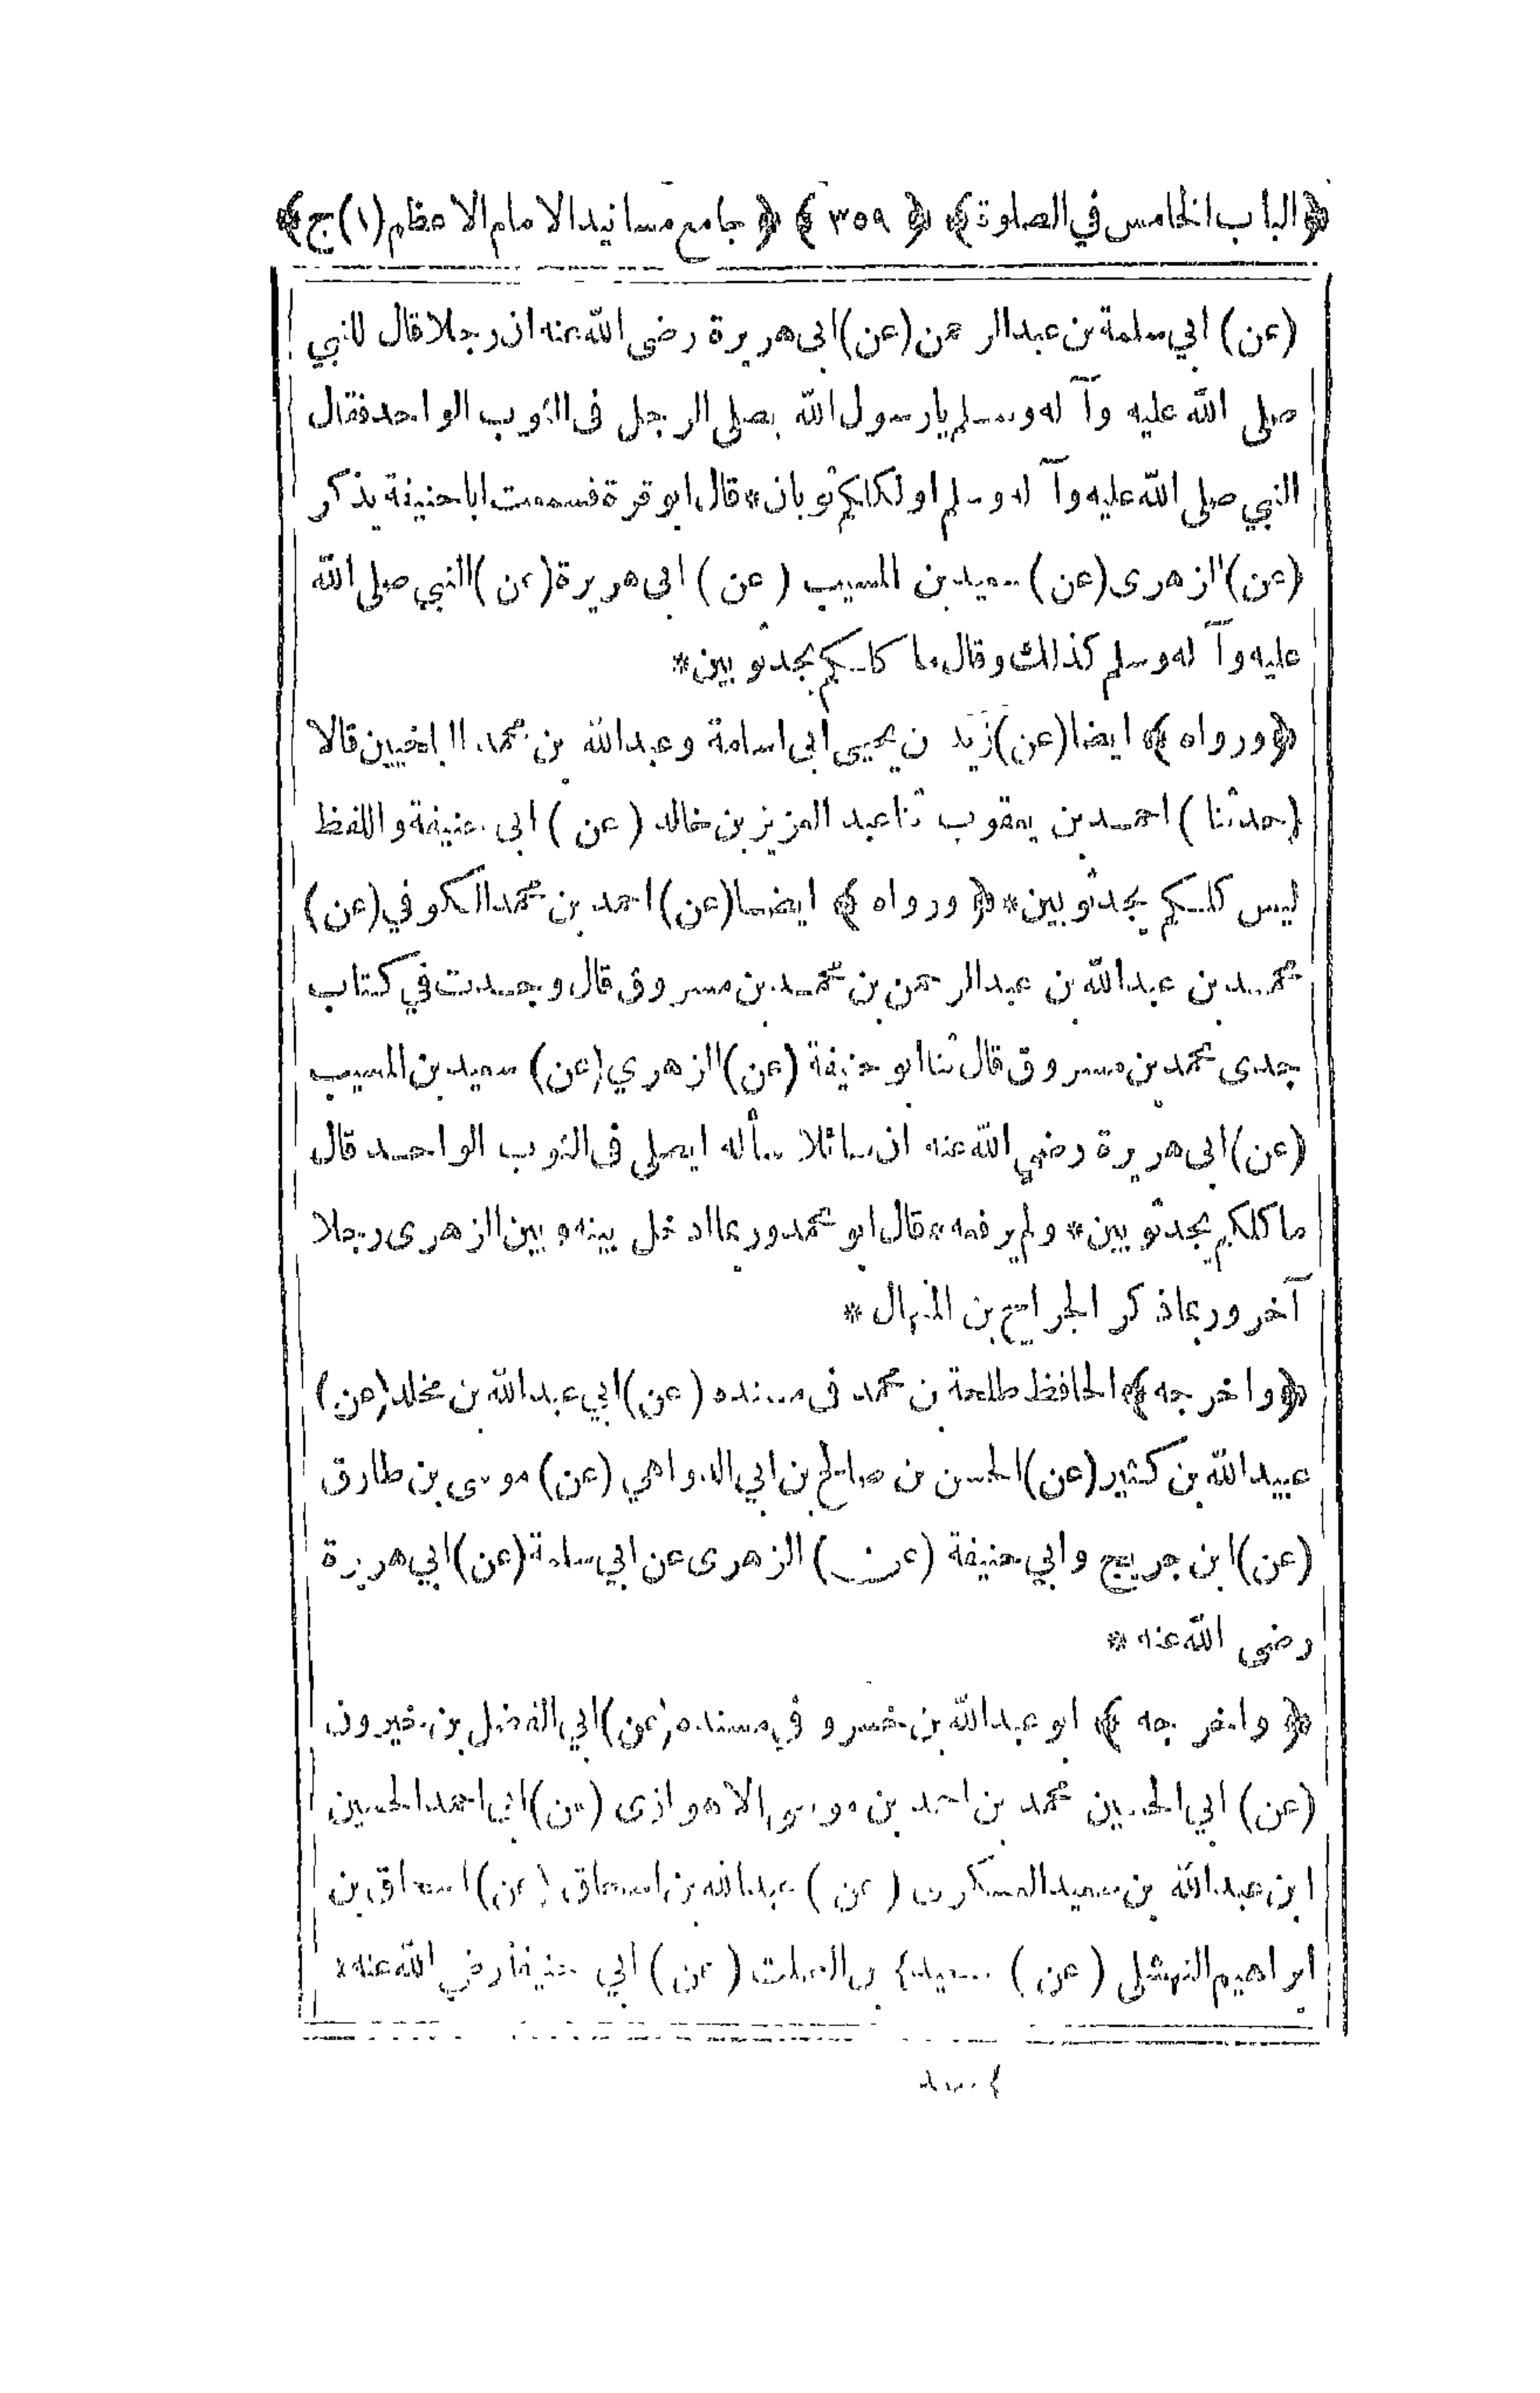 ﴿الباب الخامس في الصلوة﴾ ﴿٣٥٩﴾ ﴿جامع مسانيد الامام الاعظم (١) ج﴾
(عن) ابي سلمة بن عبدالرحمن (عن) ابى هريرة رضى الله عنه ان رجلا قال للنبي
صلى الله عليه وآله وسلم يارسول الله يصلى الرجل فى الثوب الواحد فقال
النبي صلى الله عليه وآله وسلم اولكلكم ثوبان * قال ابو قرة فسمعت اباحنيفة يذكر
(عن) الزهرى (عن) سعيد بن المسيب (عن) ابى هريرة (عن) النبي صلى الله
عليه وآله وسلم كذلك وقال ما كلكم يجد ثوبين *
﴿ورواه﴾ ايضا (عن) زيد بن يحيى ابى اسامة وعبدالله بن محمد البلخيين قالا
(حدثنا) احمد بن يعقوب ثنا عبد العزيز بن خالد (عن) ابى حنيفة واللفظ
ليس كلكم يجد ثوبين * ﴿ورواه﴾ ايضا (عن) احمد بن محمد الكوفي (عن)
محمد بن عبدالله بن عبدالرحمن بن محمد بن مسروق قال وجدت في كتاب
جدى محمد بن مسروق قال ثنا ابو حنيفة (عن) الزهري (عن) سعيد بن المسيب
(عن) ابى هريرة رضي الله عنه ان سائلا سأله ايصلى فى الثوب الواحد قال
ما كلكم يجد ثوبين * ولم يرفعه * قال ابو محمد وربما ادخل بينه وبين الزهرى رجلا
آخر وربما ذكر الجراح بن المنهال *
﴿واخرجه﴾ الحافظ طلحة بن محمد فى مسنده (عن) ابي عبدالله بن مخلد (عن)
عبيدالله بن كثير (عن) الحسن بن صالح بن ابي الدواهي (عن) موسى بن طارق
(عن) ابن جريج وابي حنيفة (عن) الزهرى عن ابي سلمة (عن) ابي هريرة
رضى الله عنه *
﴿واخرجه﴾ ابو عبدالله بن خسرو في مسنده (عن) ابي الفضل بن خيرون
(عن) ابي الحسين محمد بن احمد بن موسى الاهوازى (عن) ابى احمد الحسين
ابن عبدالله بن سعيد العسكرى (عن) عبدالله بن اسحاق (عن) اسحاق بن
ابراهيم النهشلى (عن) سعيد بن الصلت (عن) ابي حنيفة رضي الله عنه *